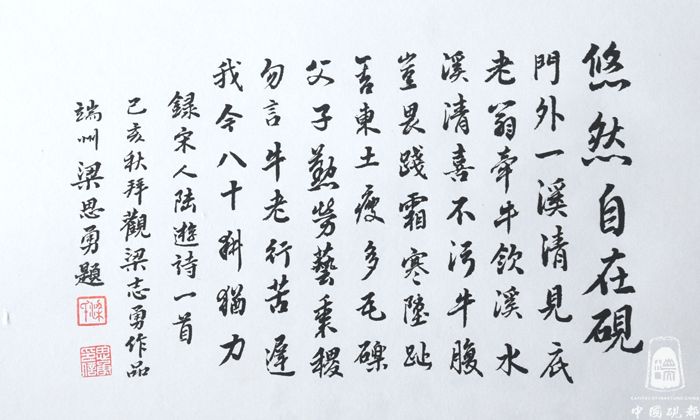 悠然自在硯
門外一溪清見底
老翁牽牛飲溪水
溪清喜不污牛腹
豈畏踐霜寒墮趾
舍東土瘦多瓦礫
父子勤勞藝黍稷
勿言牛老行苦遲
我今八十耕猶力
錄宋人陸遊詩一首
己亥秋拜觀梁志勇作品
端州梁思勇題
中國硯都